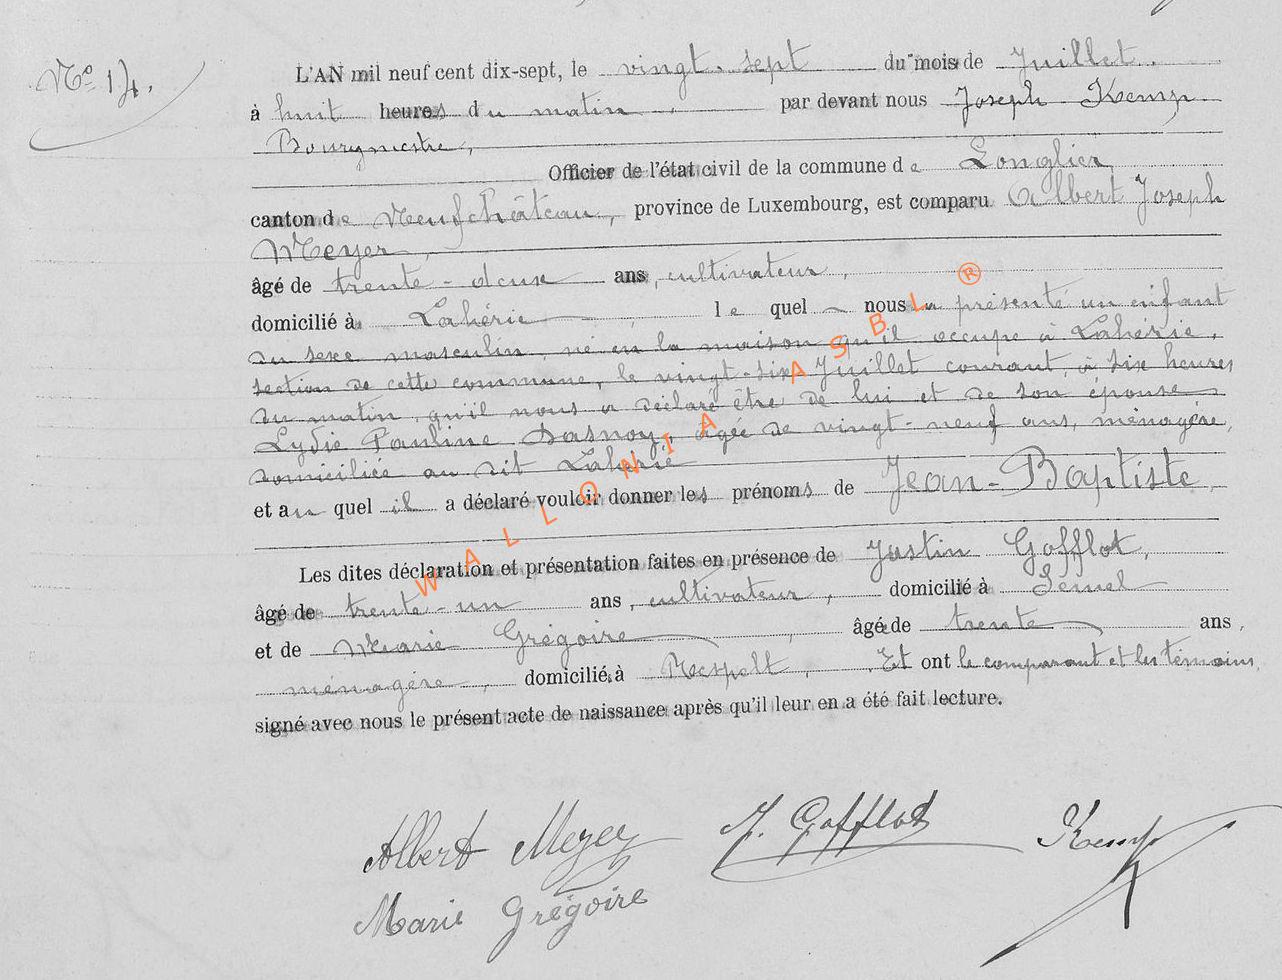 Nº 14.
L'AN mil neuf cent dix-sept, le vingt-sept du mois de Juillet.
à huit heures du matin, par devant nous Joseph Kemp
Bourgmestre,
Officier de l'état civil de la commune de Longlier
canton de Neufchâteau, province de Luxembourg, est comparu Albert Joseph
Meyer,
âgé de trente-deux ans, cultivateur,
domicilié à Lahérie, lequel nous a présenté un enfant
du sexe masculin, né en la maison qu'il occupe à Lahérie,
section de cette commune, le vingt-six Juillet courant, à six heures
du matin, qu'il nous a déclaré être de lui et de son épouse
Lydie Pauline Dasnoy, âgée de vingt-neuf ans, ménagère,
domiciliée au dit Lahérie
et au quel il a déclaré vouloir donner les prénoms de Jean-Baptiste,
Les dites déclaration et présentation faites en présence de Justin Gofflot,
âgé de trente-un ans, cultivateur, domicilié à Semel
et de Marie Grégoire, âgée de trente ans,
ménagère, domicilié à Respelt, Et ont le comparant et les témoins,
signé avec nous le présent acte de naissance après qu'il leur en a été fait lecture.
Albert Meyer J. Gofflot Kemp
Marie Grégoire
WALLONIA ASBL ®